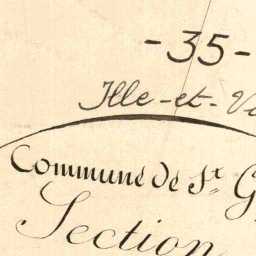 -35-
Ille-et-Vi
Commune de St. G
Section